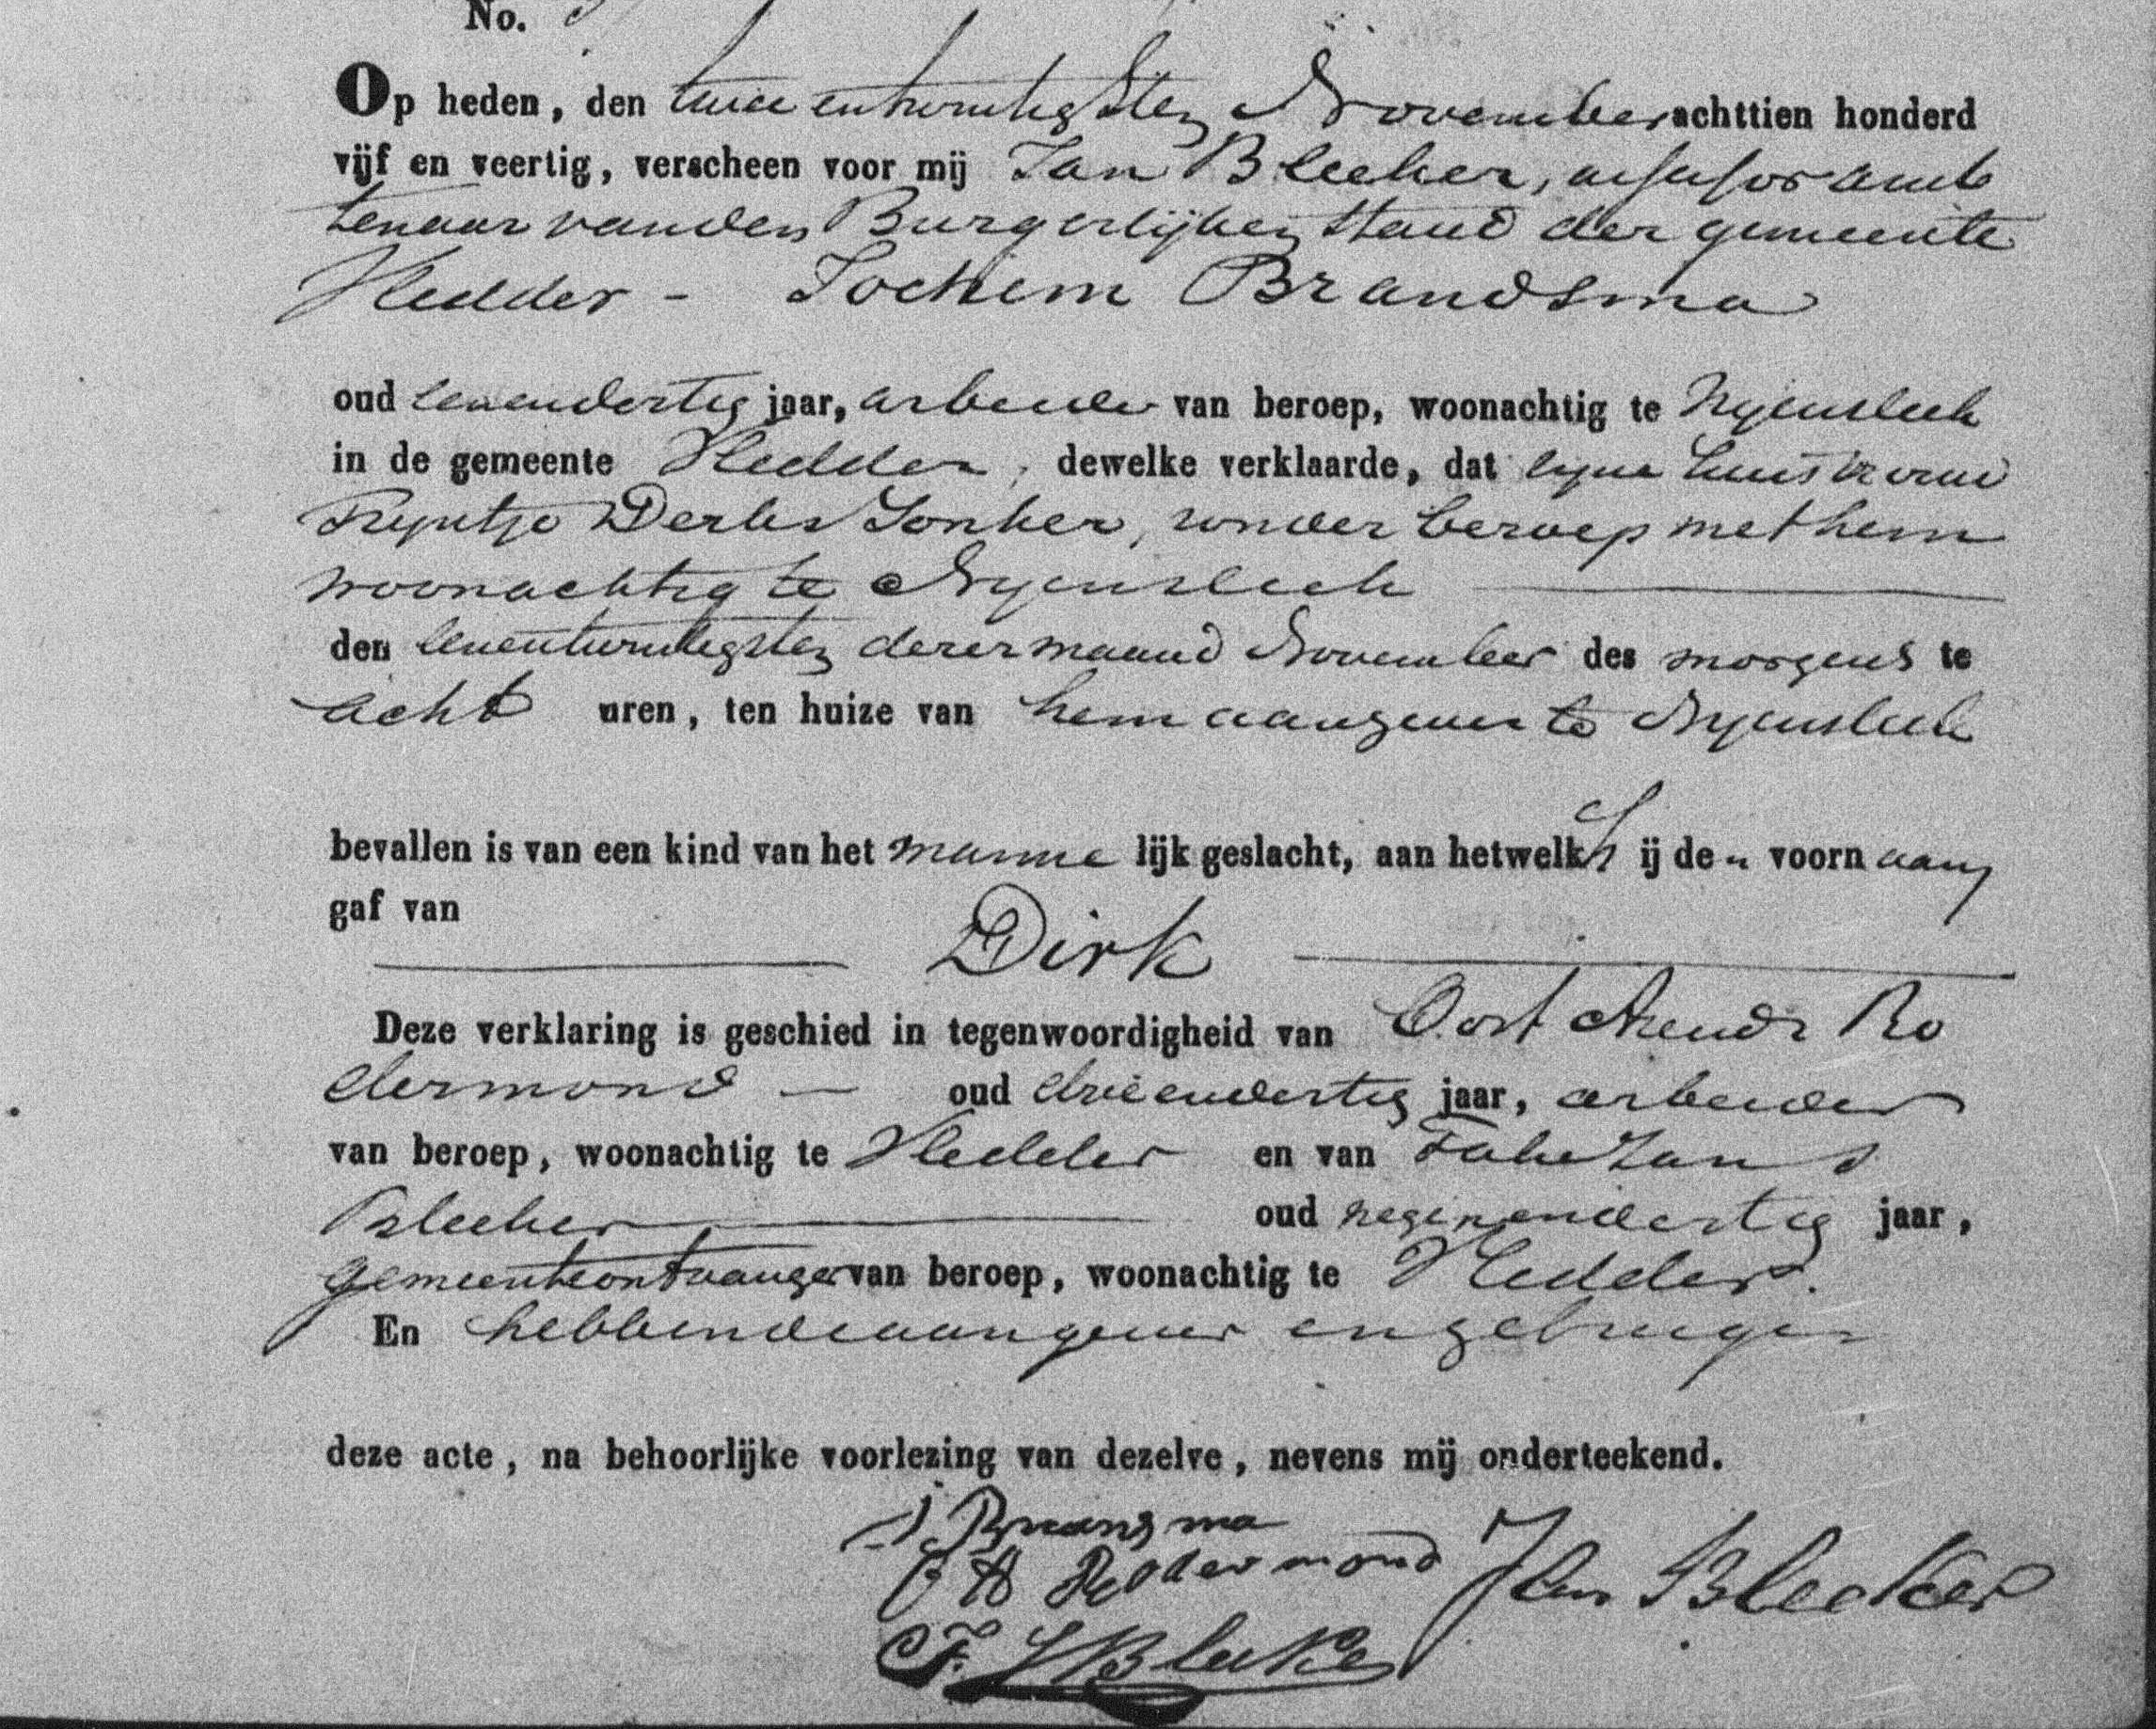 No.
Op heden, den twee entwintigsten November achttien honderd
vijf en veertig, verscheen voor mij Jan Bleeker, assessor amb
tenaar van den Burgerlijken Stand der gemeente
Vledder - Jochem Brandsma
oud eenendertig jaar, arbeider van beroep, woonachtig te Nijensleek
in de gemeente Vledder, dewelke verklaarde, dat zijne huisvrouw
Trijntje Derks Jonker, zonder beroep met hem
woonachtig te Nijensleek
den eenentwintigsten dezer maand November des morgens te
acht uren, ten huize van hem aangever te Nijensleek
bevallen is van een kind van het manne lijk geslacht, aan hetwelk hij den voornaam
gaf van
Dirk
Deze verklaring is geschied in tegenwoordigheid van Oost Arends Ro
dermond - oud drieendertig jaar, arbeider
van beroep, woonachtig te Vledder en van Fake Jans
Bleeker oud negenendertig jaar,
gemeenteontvanger van beroep, woonachtig te Vledder.
En hebbende aangever en getuigen
deze acte, na behoorlijke voorlezing van dezelve, nevens mij onderteekend.
J Brandsma
O A Rodermond Jan Bleeker
F. J Bleeker